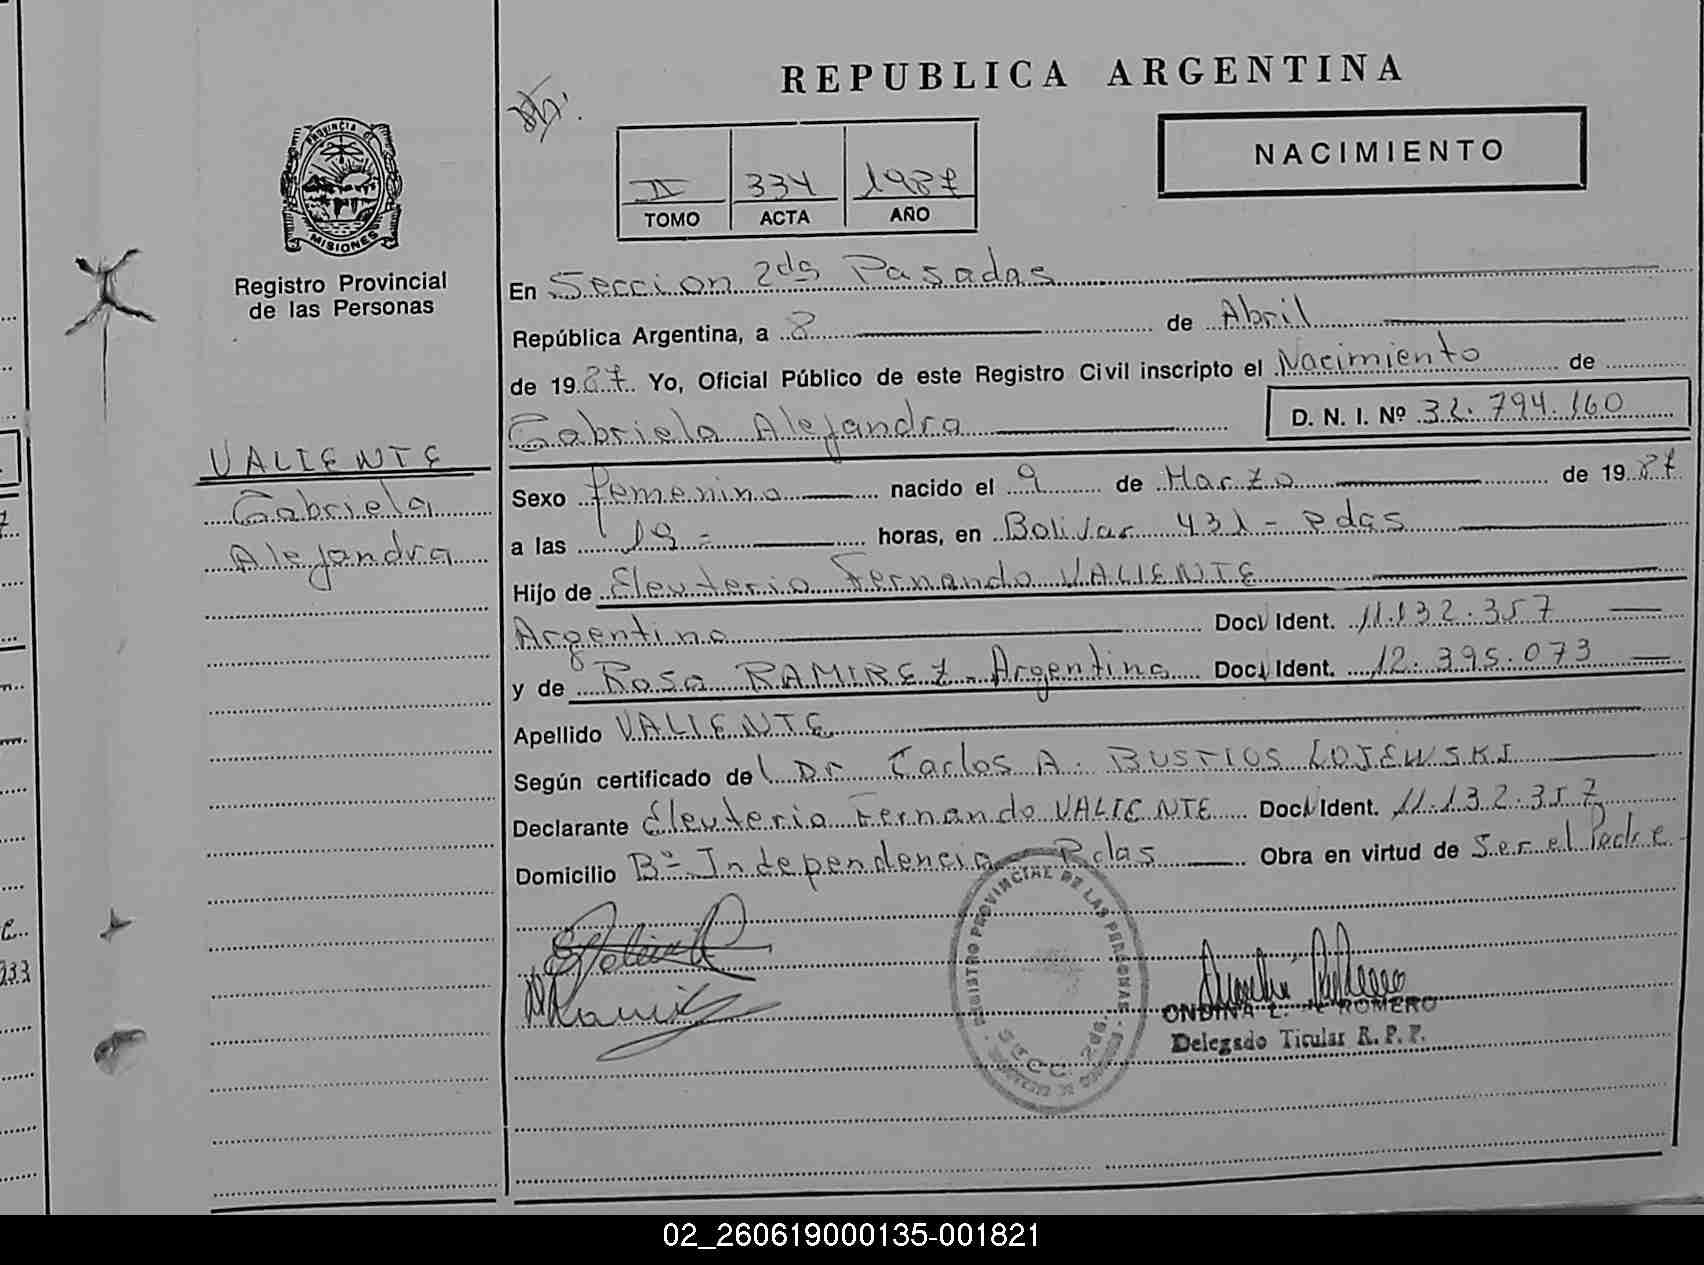 REPUBLICA ARGENTINA
NACIMIENTO
II 334 1987
TOMO ACTA AÑO
PROVINCIA DE
MISIONES
Registro Provincial
de las Personas
VALIENTE
Gabriela
Alejandra
En Seccion 2da Posadas
República Argentina, a 8 de Abril
de 1987. Yo, Oficial Público de este Registro Civil inscripto el Nacimiento de
Gabriela Alejandra D. N. I. Nº 32.794.160
Sexo femenino nacido el 9 de Marzo de 1987
a las 19 = horas, en Bolivar 431 = Pdas
Hijo de Eleuterio Fernando VALIENTE
Argentino Doc. Ident. 11.132.357
y de Rosa RAMIREZ - Argentina Doc. Ident. 12.395.073
Apellido VALIENTE
Según certificado del Dr Carlos A. BUSTIOS LOJEWSKI
Declarante Eleuterio Fernando VALIENTE Doc. Ident. 11.132.357
Domicilio Bº Independencia Pdas Obra en virtud de Ser el Padre
REGISTRO PROVINCIAL DE LAS PERSONAS
SECC. 2da.
ONDINA E. ROMERO
Delegado Titular R. P. P.
02_260619000135-001821